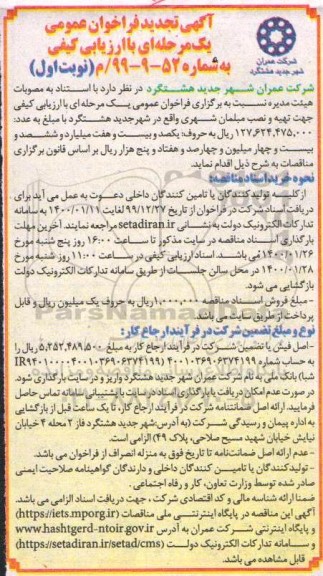 آگهی تجدید فراخوان عمومی
یک مرحله‌ای با ارزیابی کیفی
به شماره ۵۲-۹-۹۹/م (نوبت اول)
شرکت عمران
شهر جدید هشتگرد
شرکت عمران شهر جدید هشتگرد در نظر دارد با استناد به مصوبات
هیئت مدیره نسبت به برگزاری فراخوان عمومی یک مرحله ای با ارزیابی کیفی
جهت تهیه و نصب مبلمان شهری واقع در شهرجدید هشتگرد با مبلغ به عدد:
۱۲۷,۶۲۴,۴۷۵,۰۰۰ ریال به حروف: یکصد و بیست و هفت میلیارد و ششصد و
بیست و چهار میلیون و چهارصد و هفتاد و پنج هزار ریال بر اساس قانون برگزاری
مناقصات به شرح ذیل اقدام نماید.
نحوه خرید اسناد مناقصه:
از کلیه تولید کنندگان یا تامین کنندگان داخلی دعوت به عمل می آید برای
دریافت اسناد شرکت در فراخوان از تاریخ ۹۹/۱۲/۲۷ لغایت ۱۴۰۰/۰۱/۱۱ به سامانه
تدارکات الکترونیک دولت به نشانی setadiran.ir مراجعه نمایند. آخرین مهلت
بارگذاری اسناد مناقصه در سایت مذکور تا ساعت ۱۶:۰۰ روز پنج شنبه مورخ
۱۴۰۰/۰۱/۲۶ می باشد. اسناد ارزیابی کیفی در ساعت ۱۱:۰۰ روز شنبه مورخ
۱۴۰۰/۰۱/۲۸ در محل سالن جلسات از طریق سامانه تدارکات الکترونیک دولت
بازگشایی می شود.
-مبلغ فروش اسناد مناقصه ۱,۰۰۰,۰۰۰ریال به حروف یک میلیون ریال و قابل
پرداخت از طریق سایت می باشد.
نوع و مبلغ تضمین شرکت در فرآیند ارجاع کار:
-اصل فیش یا تضمین شرکت در فرآیند ارجاع کار به مبلغ ۵,۳۵۲,۴۸۹,۵۰۰ ریال
به حساب شماره ۴۰۰۱۰۳۶۹۰۶۳۷۴۱۹۹ (IR۹۴۰۱۰۰۰۰۴۰۰۱۰۳۶۹۰۶۳۷۴۱۹۹
شبا) بانک ملی به نام شرکت عمران شهر جدید هشتگرد واریز و در سایت بارگذاری شود.
در صورت عدم امکان دریافت یا بارگذاری اسناد در سایت با پشتیبانی سامانه تماس حاصل
فرمایید. ارائه اصل ضمانتنامه شرکت در فرآیند ارجاع کار، تا یک ساعت قبل از بازگشایی
به اداره پیمان و رسیدگی شرکت (به آدرس: شهر جدید هشتگرد فاز ۲ محله ۴ خیابان
نیایش خیابان شهید مسیح صلاحی، پلاک ۴۹) الزامی است.
-عدم ارائه اصل ضمانت‌نامه تا تاریخ فوق به منزله انصراف از فراخوان می باشد.
-تولید کنندگان یا تامین کنندگان داخلی و دارندگان گواهینامه صلاحیت ایمنی
صادر شده توسط وزارت تعاون، کار و رفاه اجتماعی.
ضمنا ارائه شناسه ملی و کد اقتصادی شرکت، جهت دریافت اسناد الزامی می باشد.
آگهی این مناقصه در پایگاه اینترنتی ملی مناقصات (https://iets.mporg.ir)
و پایگاه اینترنتی شرکت عمران به آدرس www.hashtgerd-ntoir.gov.ir
و سامانه تدارکات الکترونیک دولت (https://setadiran.ir/setad/cms)
قابل مشاهده می باشد.